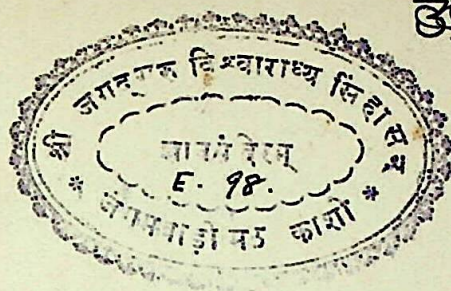 श्री जगद्गुरु विश्वाराध्य सिंहासन
E. 98.
* जंगमवाड़ी मठ काशी *